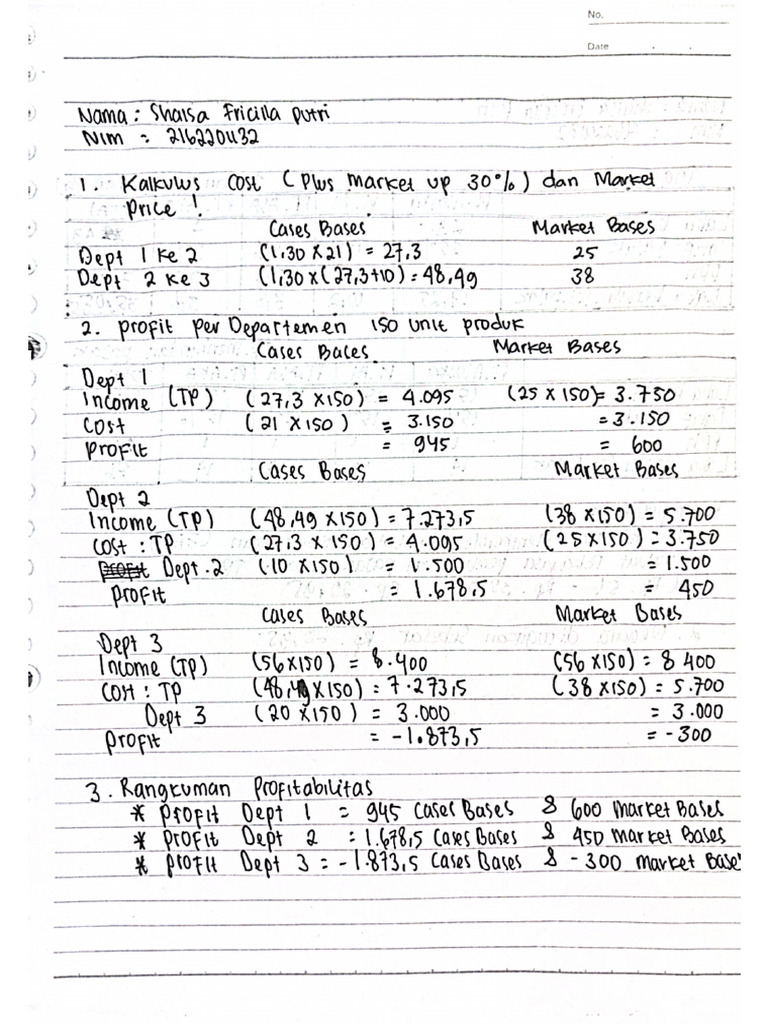 No.
Date
Nama : Shaisa Fricilla putri
Nim = 216220432
1. Kalkulus cost (Plus market up 30%) dan Market
price !
Cases Bases Market Bases
Dept 1 ke 2 (1,30 X 21) = 27,3 25
Dept 2 ke 3 (1,30 x (27,3+10) = 48,49 38
2. profit per Departemen 150 unit produk
Cases Baces Market Bases
Dept 1
Income (TP) (27,3 X 150) = 4.095 (25 x 150)= 3.750
Cost (21 X 150) = 3.150 = 3.150
profit = 945 = 600
Cases Bases Market Bases
Dept 2
Income (TP) (48,49 x 150) = 7.273,5 (38 x 150) = 5.700
cost : TP (27,3 x 150) = 4.095 (25 x 150) = 3.750
Dept.2 (10 x 150) = 1.500 = 1.500
profit = 1.678,5 = 450
Cases Bases Market Bases
Dept 3
Income (TP) (56 x 150) = 8.400 (56 x 150) = 8 400
Cost : TP (48,49 x 150) = 7.273,5 (38 x 150) = 5.700
Dept 3 (20 x 150) = 3.000 = 3.000
profit = -1.873,5 = -300
3. Rangkuman Profitabilitas
* profit Dept 1 = 945 Cases Bases & 600 Market Bases
* profit Dept 2 = 1.678,5 Cases Bases & 450 Market Bases
* profit Dept 3 = -1.873,5 Cases Bases & -300 market Base